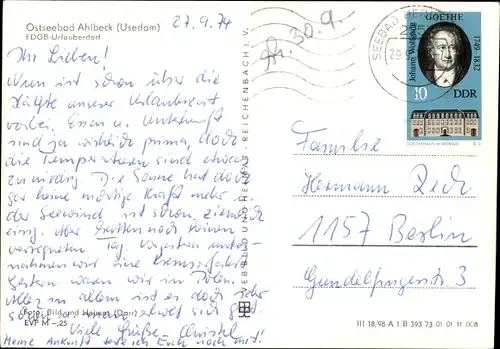 Ostseebad Ahlbeck (Usedom)
FDGB-Urlauberdorf
27.9.74
Ihr Lieben!
Nun ist schon über die
Hälfte unserer Urlaubszeit
vorbei. Essen u. Unterkunft
sind ja wirklich prima, doch
die Temperaturen sind etwas
zu niedrig. Die Sonne hat doch
gar keine richtige Kraft mehr u.
der Seewind ist schon ziemlich
eisig. Aber hatten noch keinen
verregneten Tag. Vorgestern unter-
nahmen wir eine Kremserfahrt
gestern waren wir in Polen.
Alles in allem ist es doch sehr
schön u.
Viele Grüße Christel
Meine Ankunft teile ich Euch noch mit!
Foto: Bild und Heimat (Darr)
EVP M -,25
VEB BILD UND HEIMAT REICHENBACH I. V.
30.9.
SEEBAD
GOETHE
Johann Wolfgang
1749-1832
10
DDR
GOETHEHAUS IN WEIMAR
Familie
Hermann
1157 Berlin
3
III 18/98 A 1/B 393/73 01 01 11 008